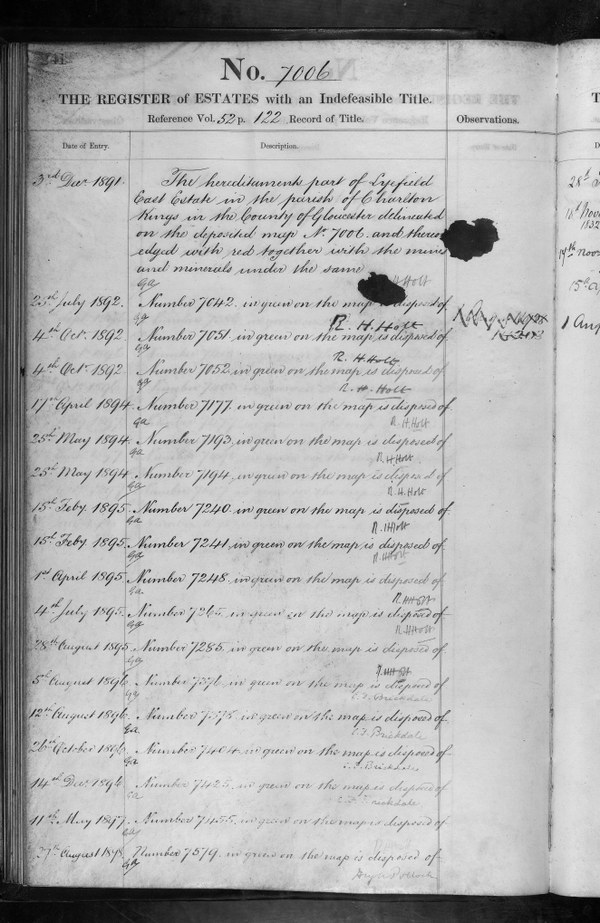 201
No. 7006
THE REGISTER of ESTATES with an Indefeasible Title.
Reference Vol. 52 p. 122 Record of Title.
Observations.
Date of Entry.
Description.
3rd Decr 1891.
The hereditaments part of Lyefield
East Estate in the parish of Charlton
Kings in the County of Gloucester delineated
on the deposited map No. 7006 and thereon
edged with red together with the mines
and minerals under the same
R H Holt
July 1892. Number 7042 in green on the map is disposed of
R. H. Holt
4th Octr 1892 Number 7051 in green on the map is disposed of
R. H. Holt
4th Octr 1892 Number 7052 in green on the map is disposed of
R. H. Holt
17th April 1894 Number 7177 in green on the map is disposed of
R. H Holt
25th May 1894 Number 7193 in green on the map is disposed of
R H Holt
25th May 1894 Number 7194 in green on the map is disposed of
R. H. Holt
15th Feby 1895 Number 7240 in green on the map is disposed of
R. H Holt
15th Feby 1895 Number 7241 in green on the map is disposed of
R H Holt
1st April 1895 Number 7248 in green on the map is disposed of
R H Holt
4th July 1895 Number 7265 in green on the map is disposed of
R H Holt
28th August 1895 Number 7285 in green on the map is disposed of
R H Holt
5th August 1896 Number in green on the map is disposed of
C. F. Brickdale
12th August 1896 Number in green on the map is disposed of
C. F. Brickdale
26th October 1896 Number 7404 in green on the map is disposed of
C. F. Brickdale
14th Decr 1896 Number 7425 in green on the map is disposed of
C F Brickdale
11th May 1897 Number 7455 in green on the map is disposed of
August 1898 Number 7519 in green on the map is disposed of
28th
1832
15th
1 Aug